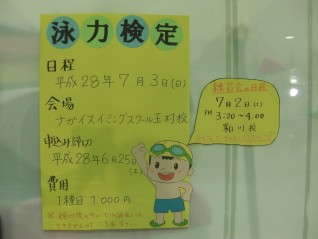 泳力検定
日程
平成28年7月3日(日)
会場
ナガイスイミングスクール玉村校
申込み締切
平成28年6月25日
(土)
費用
1種目 1.000円
練習会の日程
7月2日(土)
PM 3:20~4:00